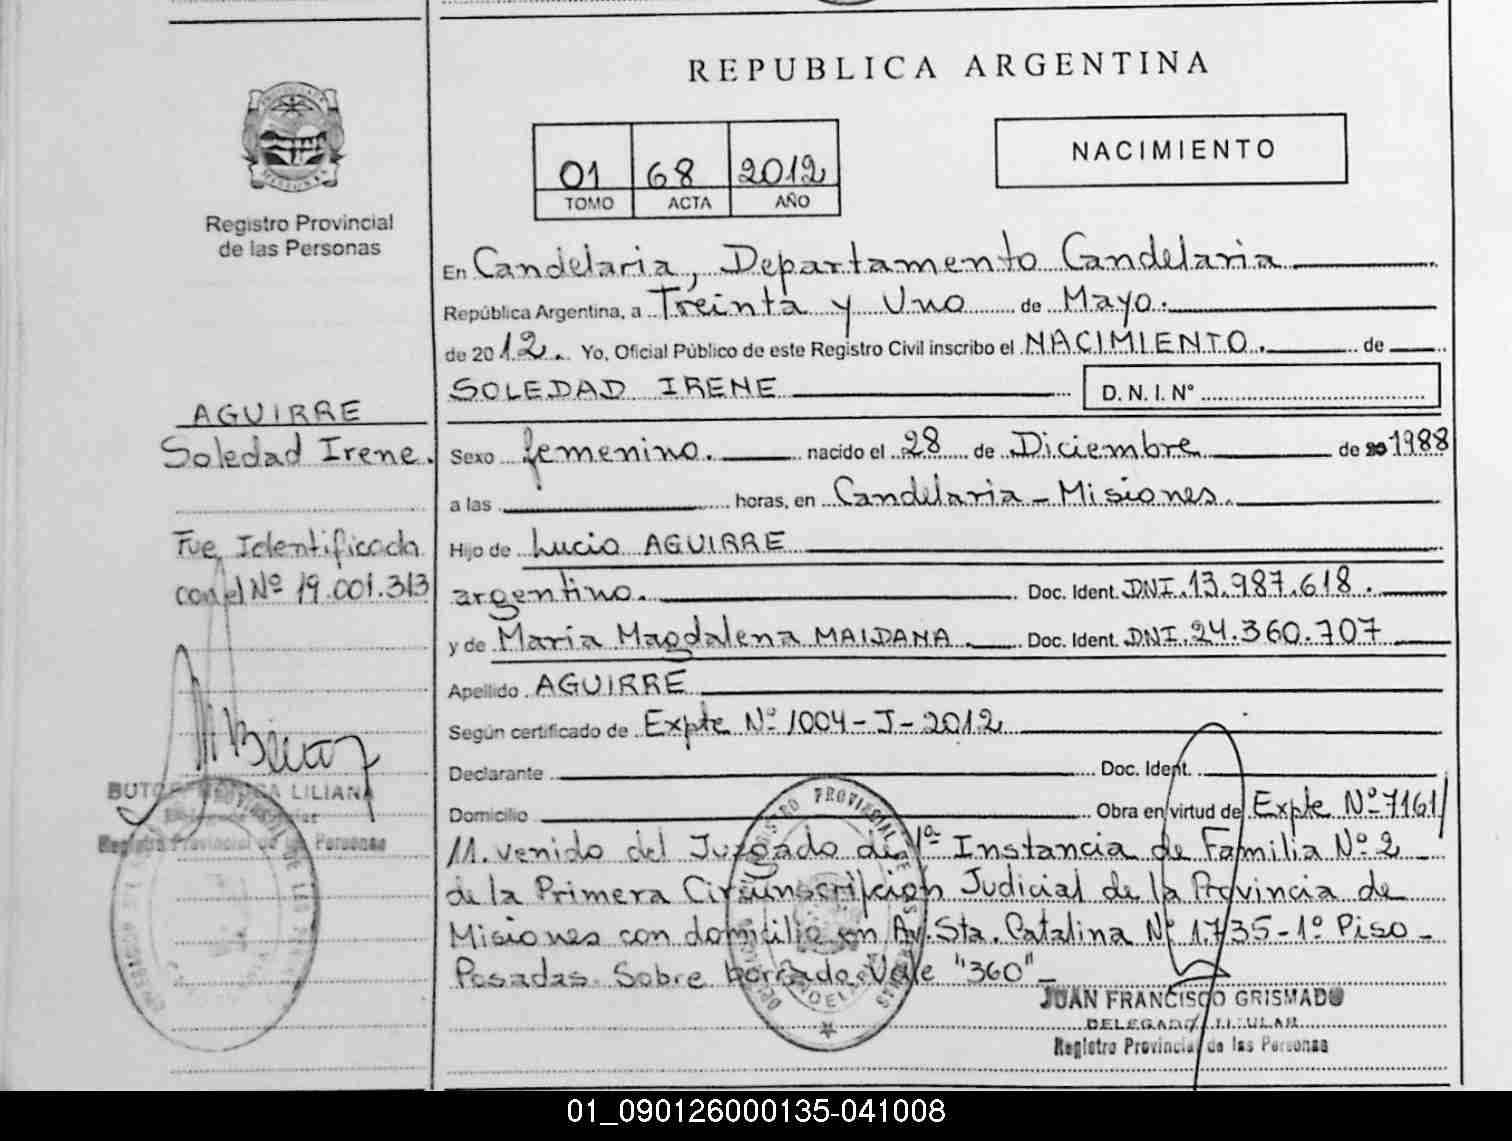 REPUBLICA ARGENTINA
01 68 2012
TOMO ACTA AÑO
NACIMIENTO
Registro Provincial
de las Personas
AGUIRRE
Soledad Irene.
Fue Identificada
con el Nº 19.001.313
LILIANA
Registro Provincial de las Personas
En Candelaria, Departamento Candelaria
República Argentina, a Treinta y Uno de Mayo.
de 2012. Yo, Oficial Público de este Registro Civil inscribo el NACIMIENTO. de
SOLEDAD IRENE D. N. I. Nº
Sexo femenino. nacido el 28 de Diciembre de 1988
a las horas, en Candelaria - Misiones.
Hijo de Lucio AGUIRRE
argentino. Doc. Ident. DNI. 13.987.618.
y de Maria Magdalena MAIDANA. Doc. Ident. DNI. 24.360.707
Apellido AGUIRRE
Según certificado de Expte Nº 1004-J-2012
Declarante Doc. Ident.
Domicilio Obra en virtud de Expte Nº 7161/
11. venido del Juzgado de 1ª Instancia de Familia Nº 2
de la Primera Circunscripcion Judicial de la Provincia de
Misiones con domicilio en Av. Sta. Catalina Nº 1735-1º Piso -
Posadas. Sobre borrado. Vale "360"
JUAN FRANCISCO GRISMADO
DELEGADO TITULAR
Registro Provincial de las Personas
01_090126000135-041008